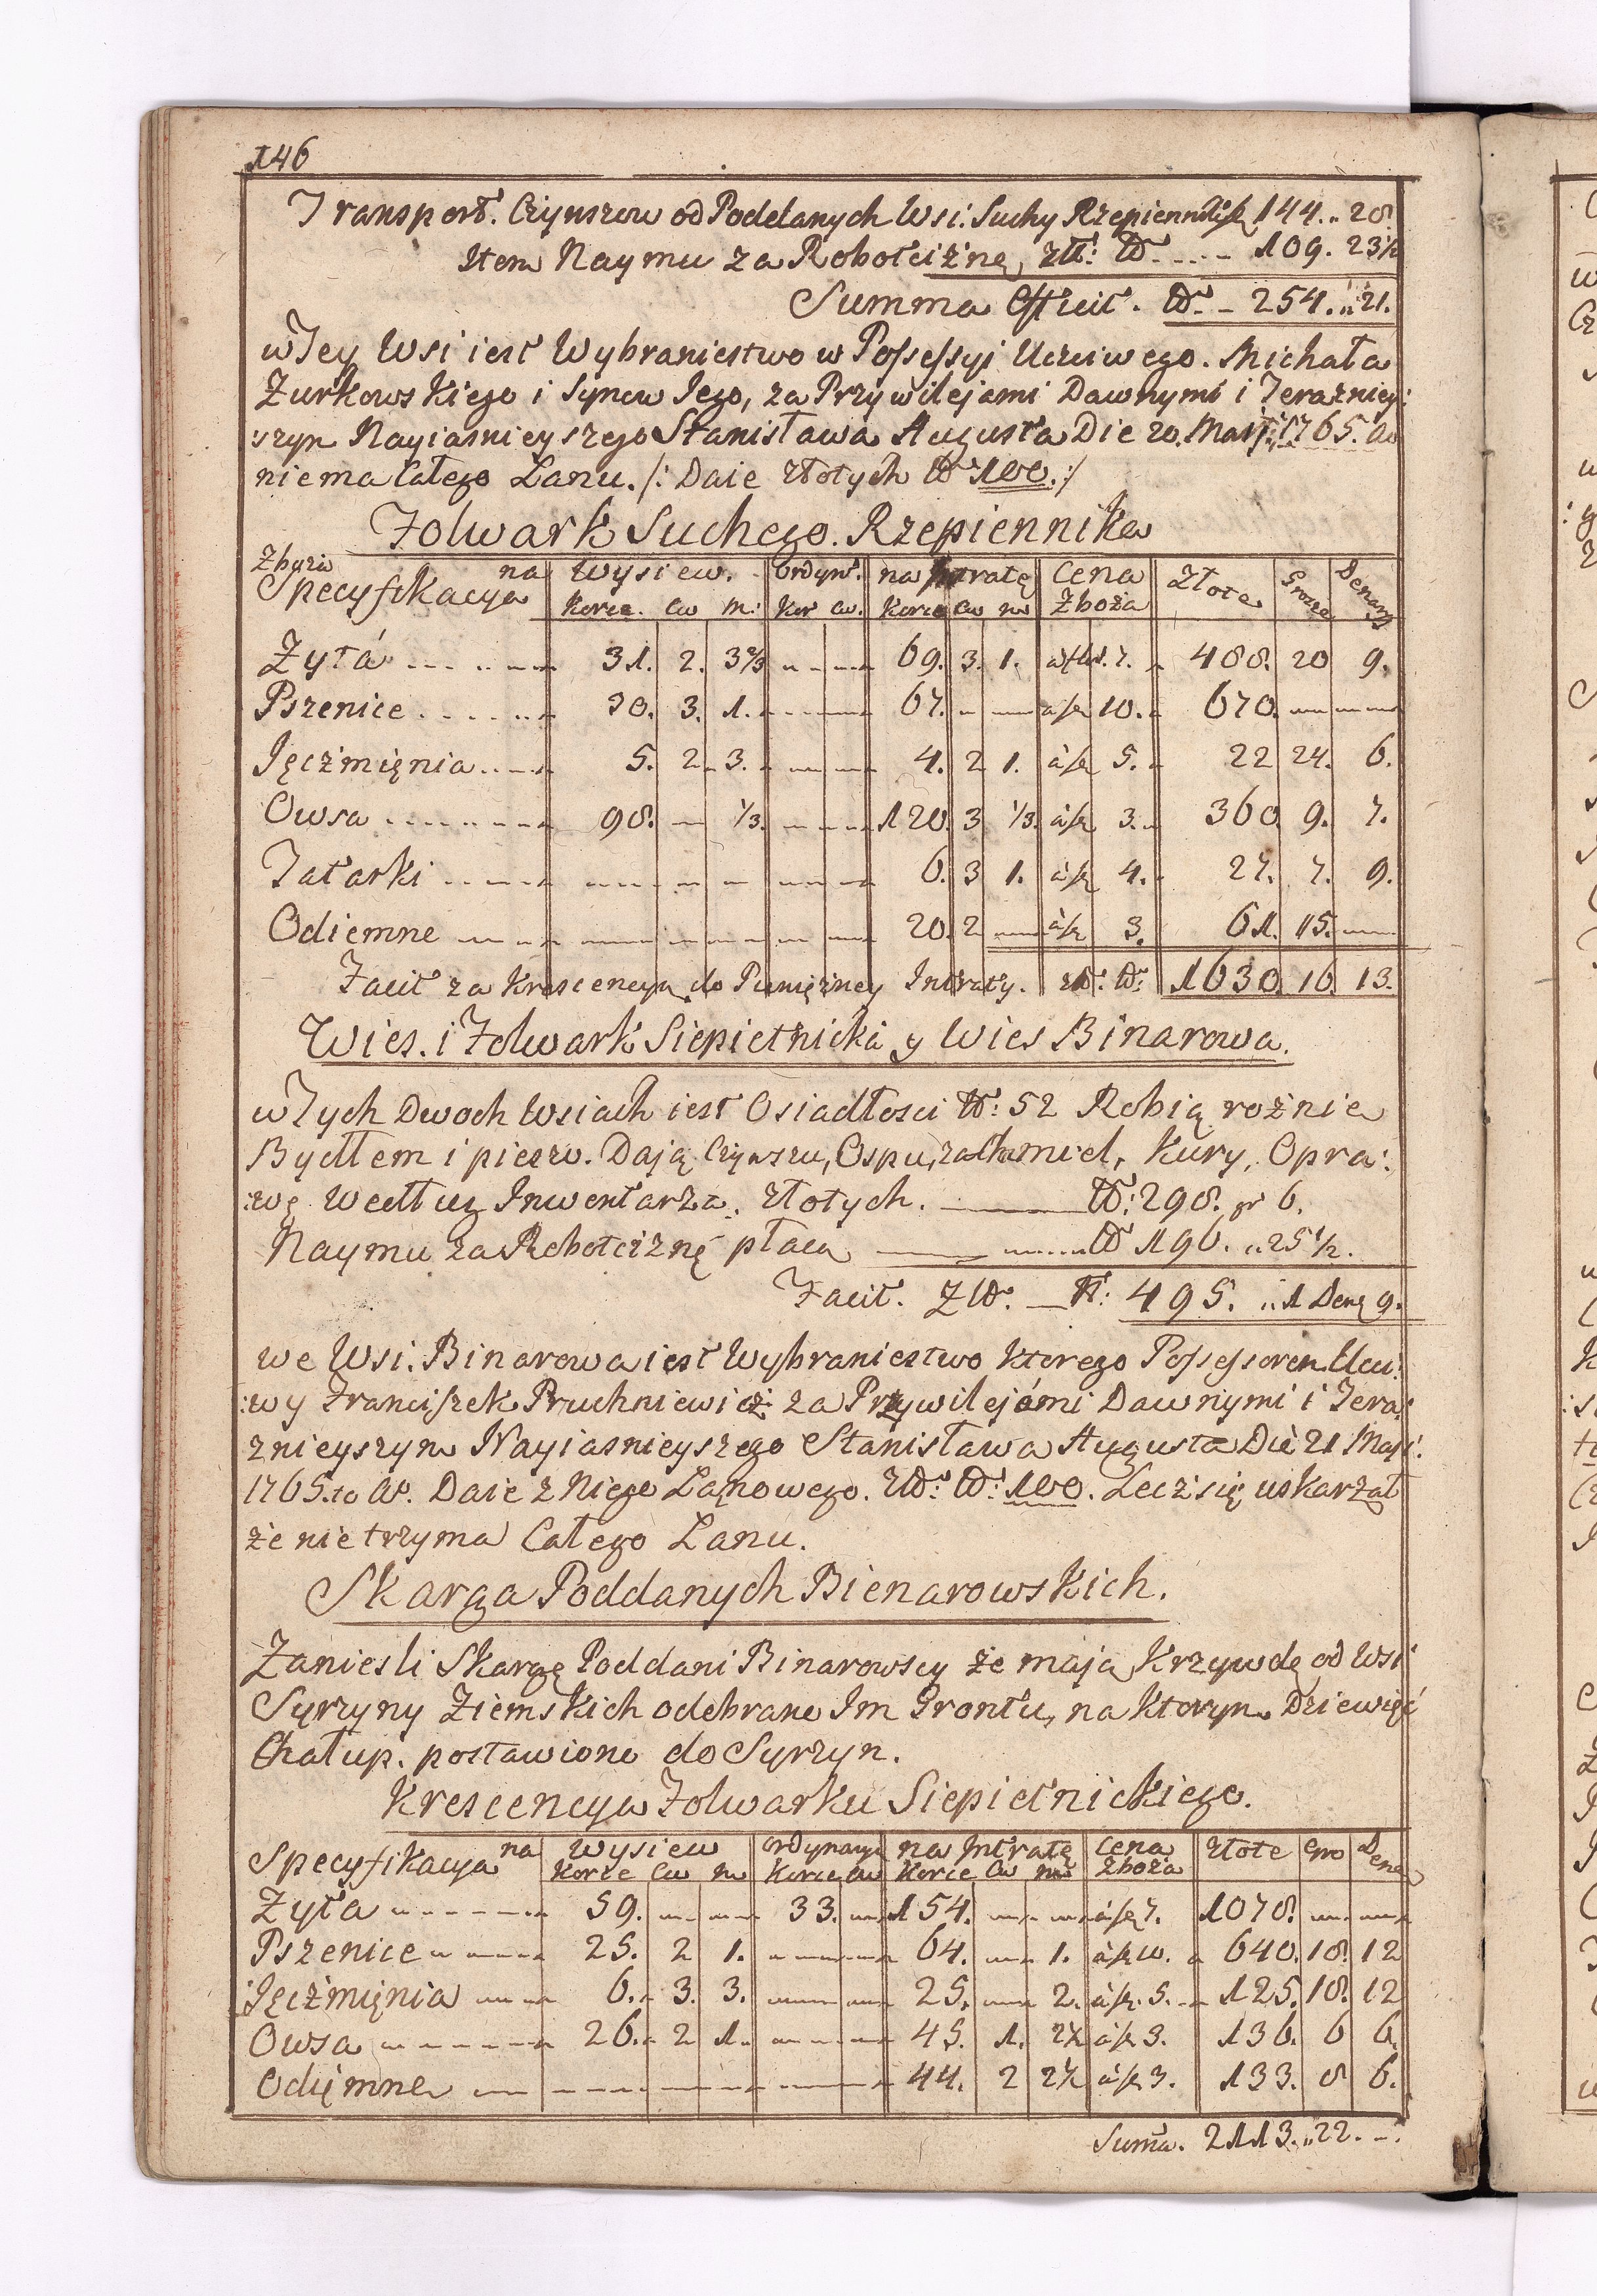 146
Transport. Czynszow od Poddanych Wsi. Suchy Rzepiennik zł 144. „ 28
Item Naymu za Robociznę, złł: No. ..... 109. 23½
Summa Efficit. No. – 254. „ 21.
w Tey Wsi iest Wybraniectwo w Possessyi Uczciwego. Michała
Zurkowskiego i Synow Jego, za Przywilejami Dawnymi i Teraznieÿ:
szym Nayiasnieyszego Stanisława Augusta Die 20. Maij. 1765. ao
nie ma Całego Łanu. /: Daie Złotych No 100. :/
Folwark Suchego. Rzepiennika
Zboża
Specyfikacya na Wysiew. Ordyn. na Intratę Cena Zboża Złote Grosze Denary
Korce. Cw m: Kor Cw. Korce Cw m
Zyta ........ 31. 2. 3⅔ 69. 3. 1. à złł. 7. 488. 20 9.
Pszenice ....... 30. 3. 1. 67. à zł 10. 670.
Jęczmięnia ..... 5. 2. 3. 4. 2 1. à zł 5. 22 24. 6.
Owsa ........ 98. — ⅓. 120. 3 ⅓. à zł 3. 360. 9. 7.
Tatarki ...... 6. 3 1. à zł 4. 27. 7. 9.
Odiemne 20. 2 à zł 3. 61. 15.
Facit za Krescencyą do Pieniężney Intraty. złł: No: 1630. 16. 13.
Wies. i Folwark Siepietnicki y Wies Binarowa.
w Tych Dwoch Wsiach iest Osiadłosci No: 52 Robią rożnie
Bydłem i pieszo. Daią Czynszu, Ospu, za Chmiel, Kury, Opra:
:wę Według Inwentarza. Złotych. No: 298. gr 6.
Naymu za Robociznę płacą No 196. „ 25½.
Facit. Złł. — No: 495. „ 1 Dena 9.
we Wsi. Binarowa iest Wybraniectwo ktorego Possessorem Ucci:
:wy Franciszek Pruchniewicz za Przywilejami Dawnymi i Tera:
znieyszym Nayiasnieyszego Stanisława Augusta Die 21 Maji.
1765.to Ao. Daie z Niego Łanowego. Złł: No: 100. Lecz się uskarzał
że nie trzyma Całego Łanu.
Skarga Poddanych Bienarowskich.
Zaniesli Skargę Poddani Binarowscy że maią Krzywdę od Wsi
Syrzyny Ziemskich odebrane Im Grontu, na ktorym Dziewięć
Chałup. postawiono do Syrzyn.
Krescencya Folwarku Siepietnickiego.
Specyfikacya na Wysiew Ordynarya na Intratę Cena Zboża Złote Gro Dena
Korce Cw m Korce Cw Korce Cw m
Zyta 59. 33. 154. à zł 7. 1078.
Pszenice 25. 2 1. 64. 1. à zł 10. 640. 18. 12
Jęczmięnia 6. 3. 3. 25. 2. à zł. 5. 125. 18. 12
Owsa 26. 2 1. 45. 1. 2½ à zł 3. 136. 6 6.
Odięmne 44. 2 2½ à zł 3. 133. 8 6.
Suma. 2113. „ 22. –.